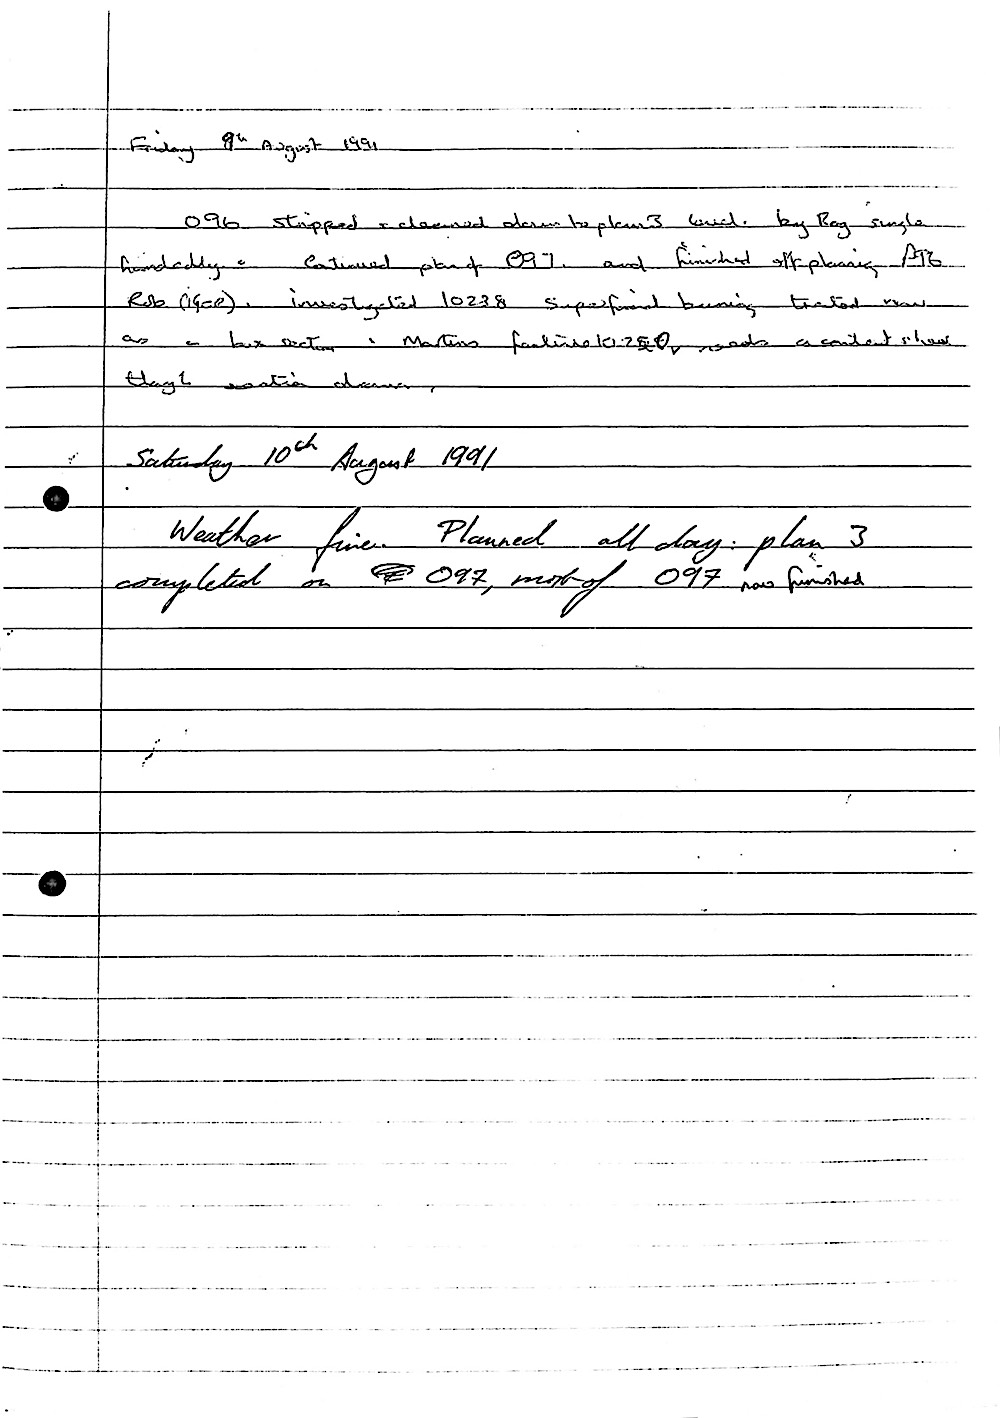 Friday 9th August 1991
096 stripped & cleaned down to plan 3 level. by Reg single
handedly. Continued plan of 097. and finished off planning A96
Rob (IGCP). investigated 10238 superficial burning treated now
as a box section. Martins feature 10250, needs a context sheet
though section drawn.
Saturday 10th August 1991
Weather fine. Planned all day: plan 3
completed on 097, most of 097 now finished